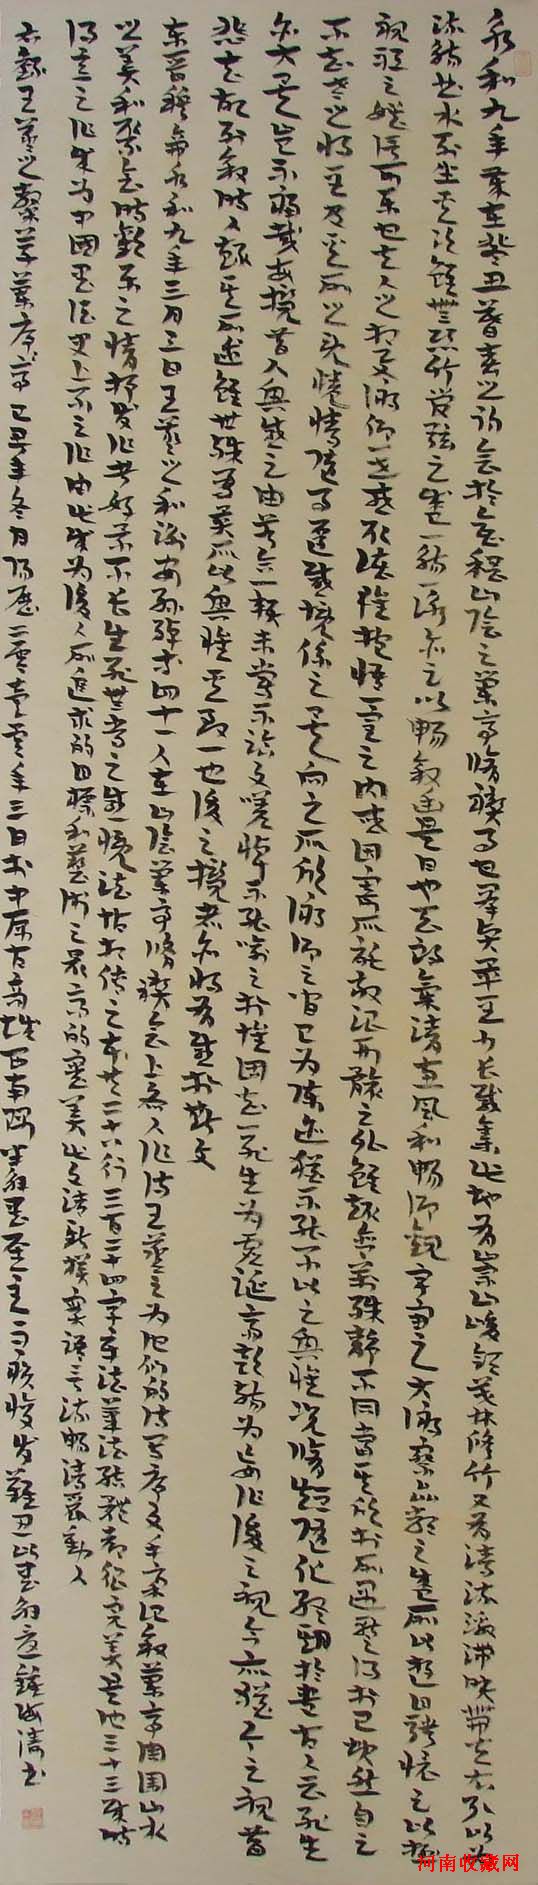 永和九年歲在癸丑暮春之初會於會稽山陰之蘭亭脩禊事也群賢畢至少長咸集此地有崇山峻領茂林脩竹又有清流激湍映帶左右引以為
流觴曲水列坐其次雖無絲竹管弦之盛一觴一詠亦足以暢敘幽是日也天朗氣清惠風和暢仰觀宇宙之大俯察品類之盛所以遊目騁懷足以極
視聽之娛信可樂也夫人之相與俯仰一世或取諸懷抱悟言一室之內或因寄所託放浪形骸之外雖趣舍萬殊靜不同當其欣於所遇暫得於己快然自足
不知老之將至及其所之既惓情隨事遷感慨係之矣向之所欣俯仰之間已為陳迹猶不能不以之興懷況脩短隨化終期於盡古人云死生
亦大矣豈不痛哉每攬昔人興感之由若合一契未嘗不臨文嗟悼不能喻之於懷固知一死生為虛誕齊彭殤為妄作後之視今亦猶今之視昔
悲夫故列敘時人錄其所述雖世殊事異所以興懷其致一也後之攬者亦將有感於斯文
東晉穆帝永和九年三月三日王羲之和謝安孫綽等四十一人在山陰蘭亭脩禊會上眾人作詩王羲之為他們的詩寫序文手稿記敘蘭亭周圍山水
之美和聚會時歡樂之情抒發作者好景不長生死無常之感慨法帖相傳之本共二十八行三百二十四字章法筆法結體都很完美是他三十三歲時
得意之作成為中國書法史上不之作由此成為後人所追求的目標和藝術之最高的審美此文清新樸實語言流暢清麗動人
右錄王羲之蘭亭序己丑年冬月陽歷二零壹零年三日於中原古商城西南隅海濤書
河南收藏网